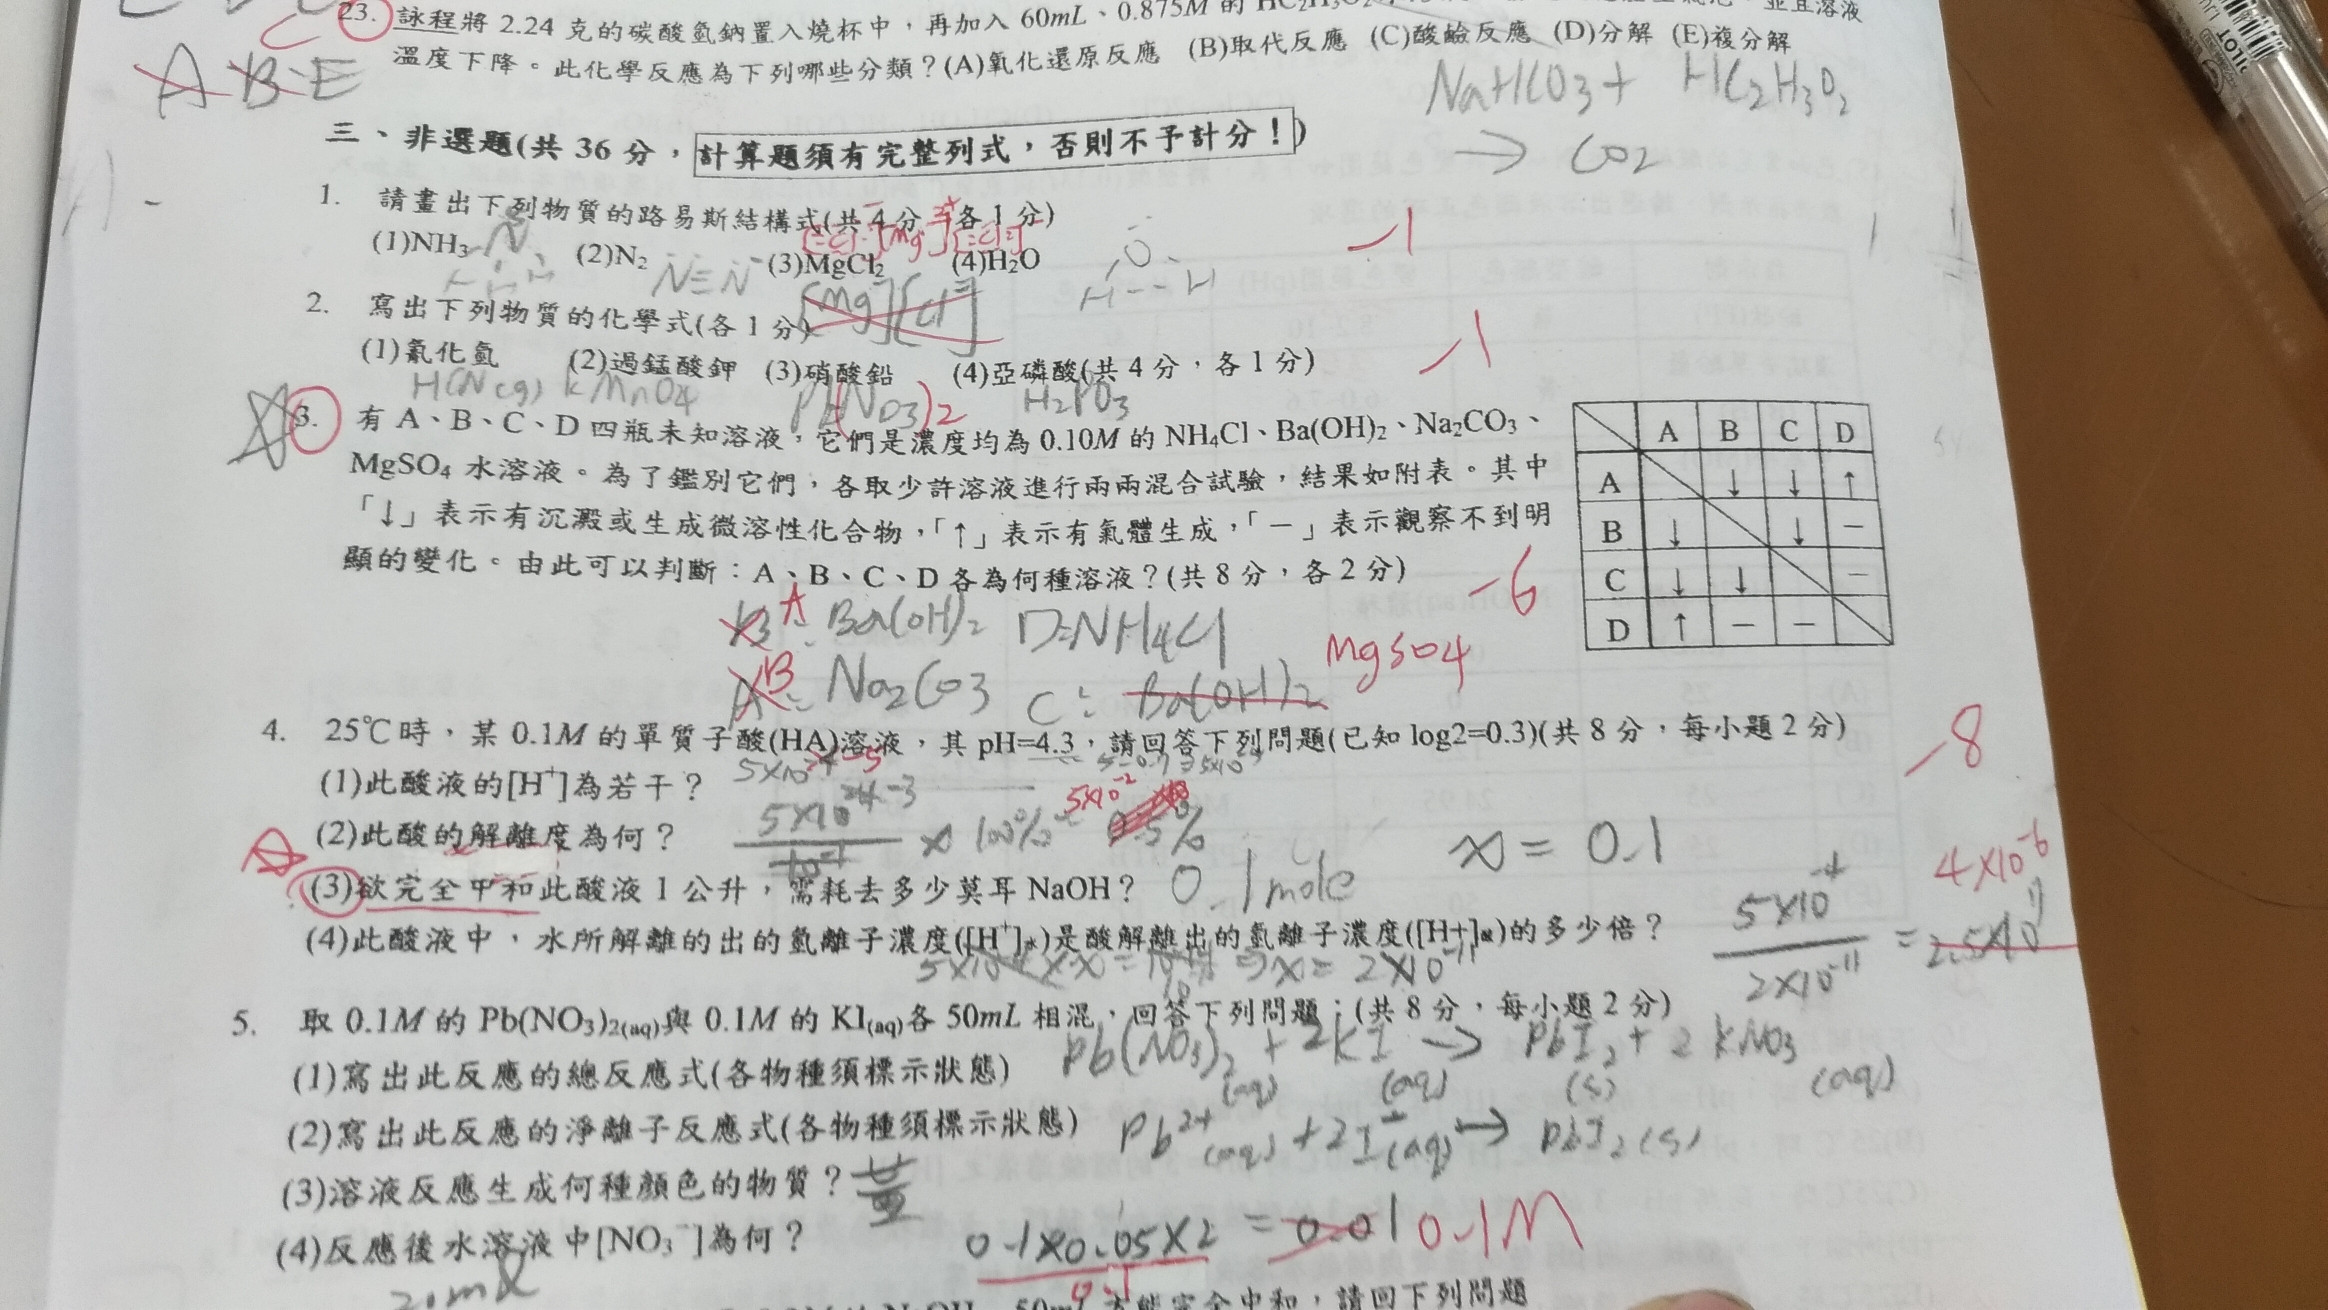 23. 詠程將 2.24 克的碳酸氫鈉置入燒杯中，再加入 60mL、0.875M 的 HC2H3O2 並且溶液
溫度下降。此化學反應為下列哪些分類？(A)氧化還原反應 (B)取代反應 (C)酸鹼反應 (D)分解 (E)複分解
C
ABE
NaHCO3 + HC2H3O2
→ CO2
三、非選題(共 36 分，計算題須有完整列式，否則不予計分！)
1. 請畫出下列物質的路易斯結構式(共 4 分，各 1 分)
-1
(1)NH3 (2)N2 (3)MgCl2 (4)H2O
N≡N
[Mg][Cl]
2. 寫出下列物質的化學式(各 1 分)
-1
(1)氰化氫 (2)過錳酸鉀 (3)硝酸鉛 (4)亞磷酸(共 4 分，各 1 分)
HCN(g) KMnO4 Pb(NO3)2 H2PO3
3. 有 A、B、C、D 四瓶未知溶液，它們是濃度均為 0.10M 的 NH4Cl、Ba(OH)2、Na2CO3、
MgSO4 水溶液。為了鑑別它們，各取少許溶液進行兩兩混合試驗，結果如附表。其中
「↓」表示有沉澱或生成微溶性化合物，「↑」表示有氣體生成，「－」表示觀察不到明
顯的變化。由此可以判斷：A、B、C、D 各為何種溶液？(共 8 分，各 2 分)
-6
A B C D
A ↓ ↓ ↑
B ↓ ↓ －
C ↓ ↓ －
D ↑ － －
B A: Ba(OH)2 D=NH4Cl
A B: Na2CO3 C: Ba(OH)2 MgSO4
4. 25℃時，某 0.1M 的單質子酸(HA)溶液，其 pH=4.3，請回答下列問題(已知 log2=0.3)(共 8 分，每小題 2 分)
-8
(1)此酸液的[H+]為若干？
(2)此酸的解離度為何？ × 100% 5×10-2
x = 0.1
(3)欲完全中和此酸液 1 公升，需耗去多少莫耳 NaOH？ 0.1 mole
4×10-6
(4)此酸液中，水所解離的出的氫離子濃度([H+]水)是酸解離出的氫離子濃度([H+]酸)的多少倍？
2×10-11
5. 取 0.1M 的 Pb(NO3)2(aq)與 0.1M 的 KI(aq)各 50mL 相混，回答下列問題：(共 8 分，每小題 2 分)
(1)寫出此反應的總反應式(各物種須標示狀態) Pb(NO3)2(aq) + 2KI(aq) → PbI2(s) + 2KNO3(aq)
(2)寫出此反應的淨離子反應式(各物種須標示狀態) Pb2+(aq) + 2I-(aq) → PbI2(s)
(3)溶液反應生成何種顏色的物質？黃
(4)反應後水溶液中[NO3-]為何？ 0.1×0.05×2 = 0.01 0.1M
0.1
20mL
50mL 才能完全中和，請回下列問題